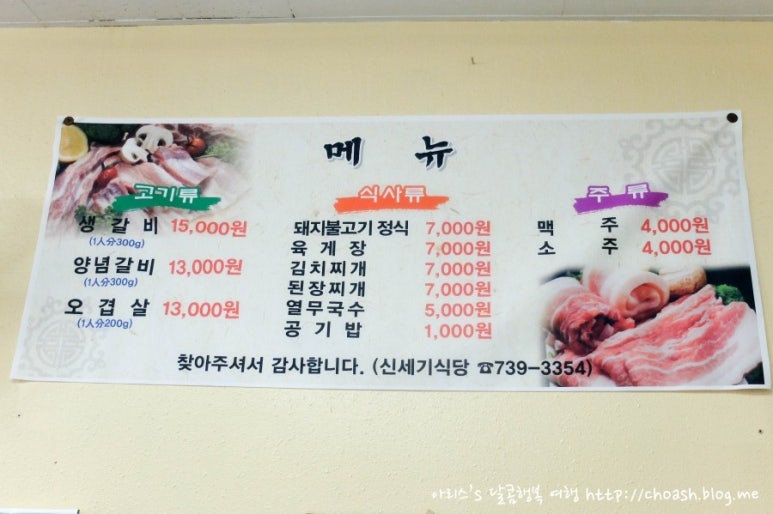 메 뉴
고기류
생갈비 15,000원
(1人分300g)
양념갈비 13,000원
(1人分300g)
오겹살 13,000원
(1人分200g)
식사류
돼지불고기 정식 7,000원
육게장 7,000원
김치찌개 7,000원
된장찌개 7,000원
열무국수 5,000원
공기밥 1,000원
주류
맥주 4,000원
소주 4,000원
찾아주셔서 감사합니다. (신세기식당 ☎739-3354)
아리스's 달콤행복 여행 http://choash.blog.me